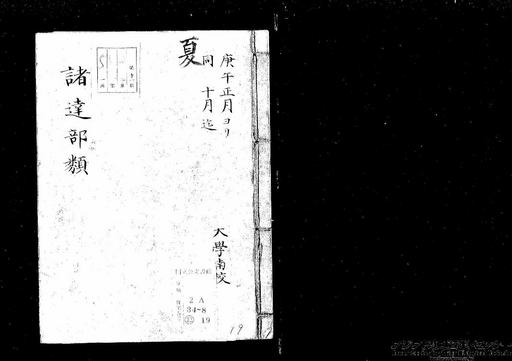 庚午正月ヨリ
同 十月迄
夏
諸達部類
大學南校
2 A
34-8
19
19